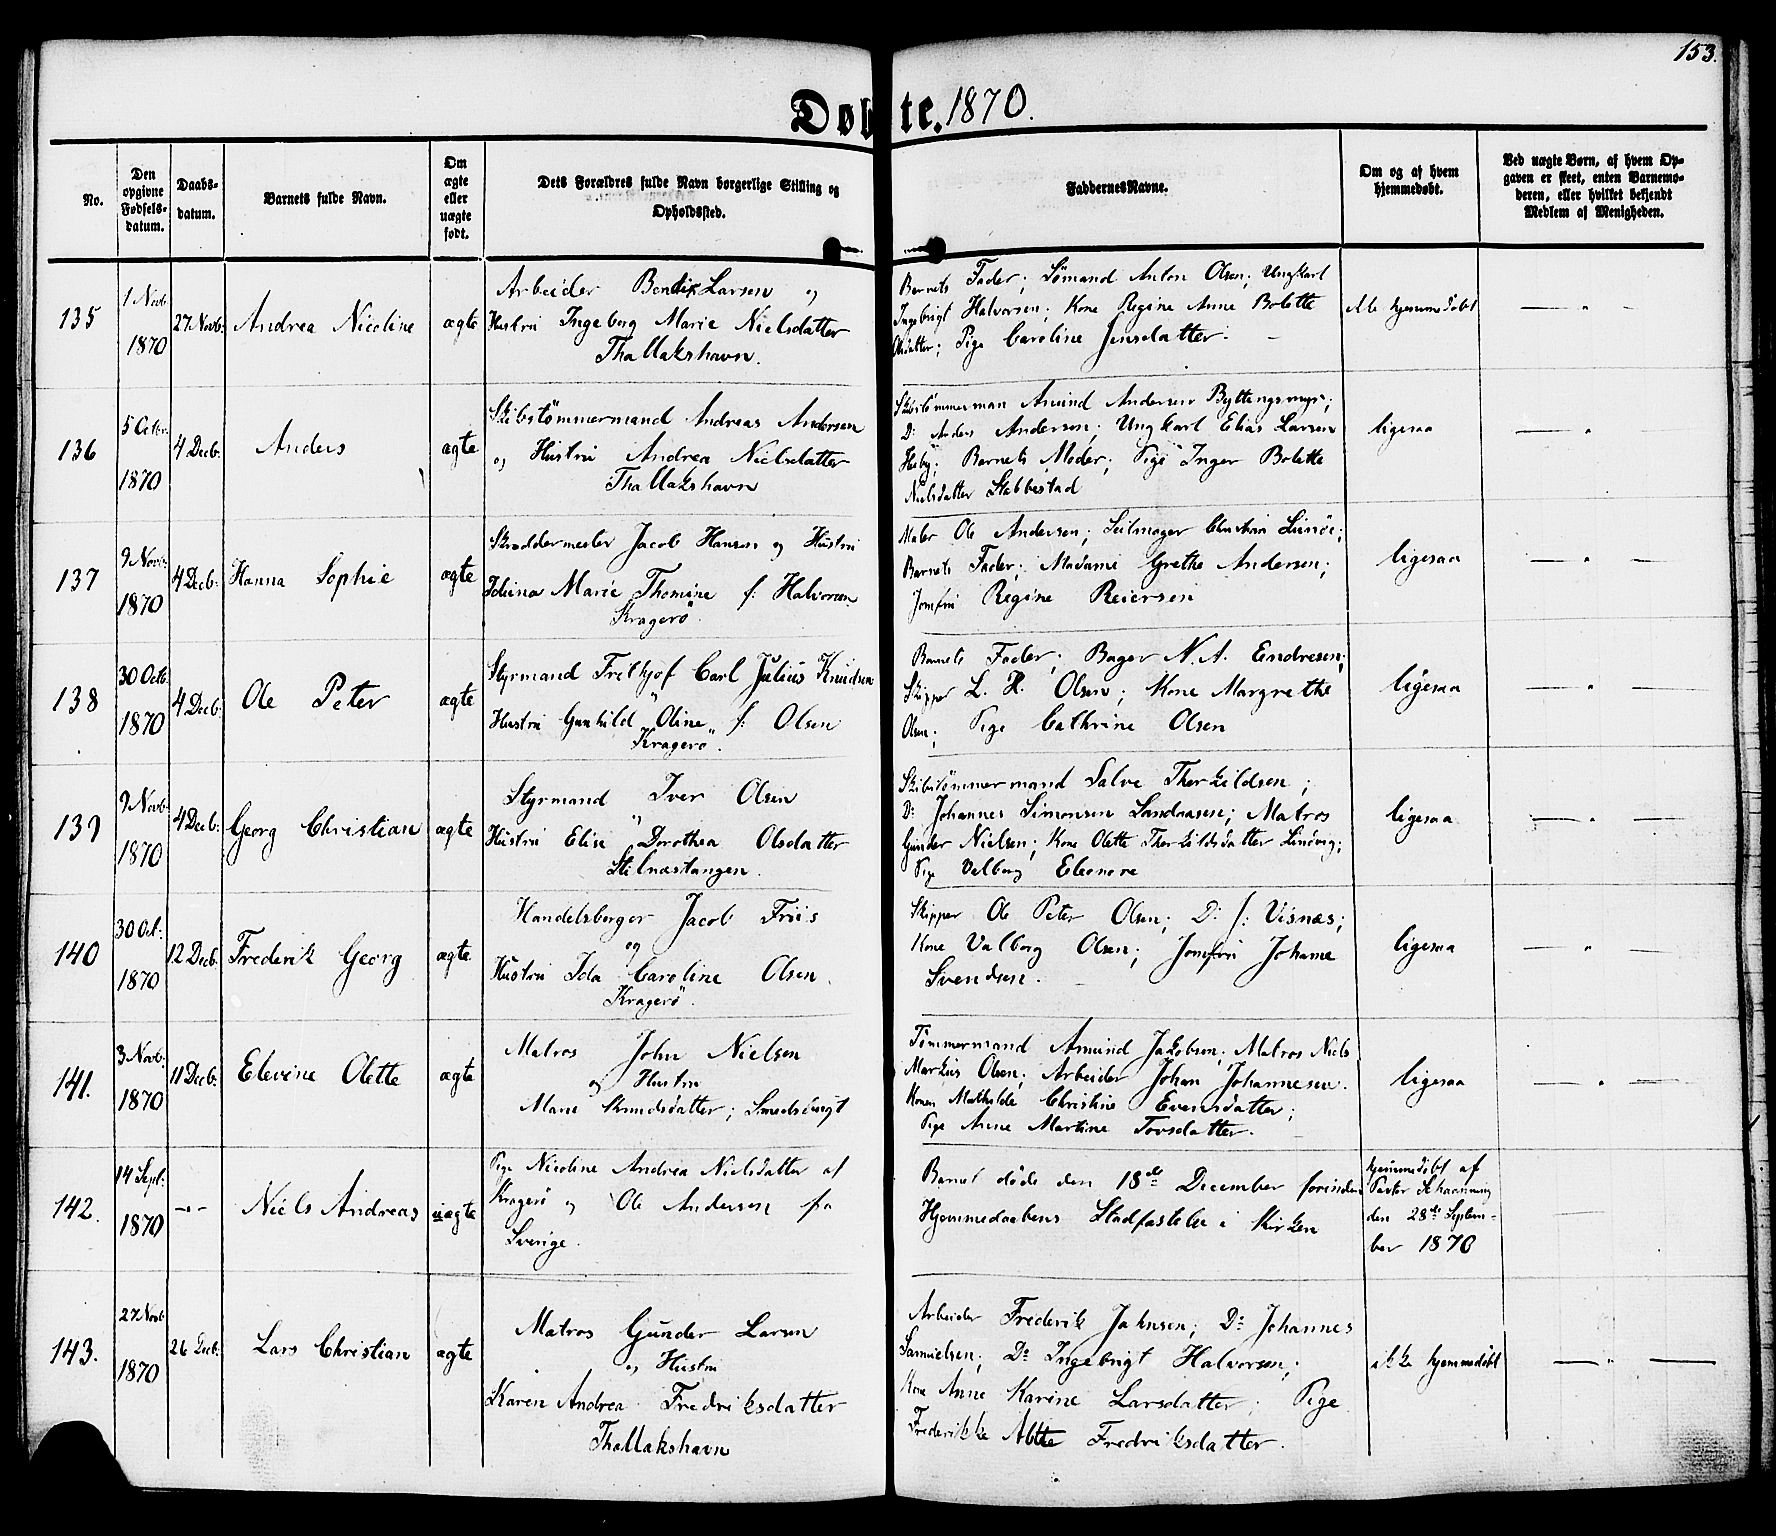 153.
Døbte. 1870.
No.
Den opgivne Fødsels-datum.
Daabs-datum.
Barnets fulde Navn.
Om ægte eller uægte født.
Dets Forældres fulde Navn borgerlige Stilling og Opholdssted.
Faddernes Navne.
Om og af hvem hjemmedøbt.
Ved uægte Børn, af hvem Op-
gaven er skeet, enten Barnemo-
deren, eller hvilket bekjendt
Medlem af Menigheden.
135
1 Novb.
1870
27 Novb.
Andrea Nicoline
ægte
Arbeider Bendix Larsen og
Hustru Ingeborg Marie Nielsdatter
Thallakshavn.
Barnets Fader; Sömand Anton Olsen; Ungkarl
Ingebrigt Halvorsen; Kone Regine Anne Bolette
Olsdatter; Pige Caroline Jensdatter.
ikke hjemmedöbt
136
5 Octbr.
1870
4 Decb.
Anders
ægte
Skibstömmermand Andreas Andersen
og Hustru Andrea Nielsdatter
Thallakshavn
Skibstömmerman Amund Andersen Byttingsmyr;
D: Anders Andersen; Ungkarl Elias Larsen
Heiby; Barnets Moder; Pige Inger Bolette
Nielsdatter Stabbestad
ligesaa
137
9 Novb.
1870
4 Decb.
Hanna Sophie
ægte
Skræddermester Jacob Hansen og Hustru
Marie Thomine f: Halvorsen
Kragerö.
Maler Ole Andersen; Seilmager Christian
Barnets Fader; Madame Grethe Andersen;
Jomfru Regine Reiersen
ligesaa
138
30 Octb.
1870
4 Decb.
Ole Peter
ægte
Styrmand Frithjof Carl Julius Knudsen
Hustru Gunhild Oline f: Olsen
Kragerö.
Barnets Fader; Bager N. A. Endresen;
Skipper L. H. Olsen; Kone Margrethe
Olsen; Pige Cathrine Olsen
ligesaa
139
9 Novb.
1870
4 Decb.
Georg Christian
ægte
Styrmand Iver Olsen
Hustru Elise Dorothea Olsdatter
Stilnæstangen.
Skibstömmermand Salve Therkildsen;
D: Johannes Simonsen Sandaasen; Matros
Gunder Nielsen; Kone Olette Therkildsdatter Lindvig;
Pige Valborg Eleonore
ligesaa
140
30 Oct.
1870
12 Decb.
Frederik Georg
ægte
Handelsborger Jacob Friis
og
Hustru Ida Caroline Olsen.
Kragerö.
Skipper Ole Peter Olsen; D: f: Visnæs;
Kone Valborg Olsen; Jomfru Johanne
Svendsen.
ligesaa
141.
3 Novb.
1870
11 Decb.
Elevine Olette
ægte
Matros John Nielsen
og Hustru
Marie Knudsdatter; Smedsbugt
Tömmermand Amund Jakobsen; Matros Niels
Markus Olsen; Arbeider Johan Johannesen.
Konen Mathilde Christine Evensdatter;
Pige Anne Martine Tovsdatter.
ligesaa
142.
14 Sept.
1870
Niels Andreas
uægte
Pige Nicoline Andrea Nielsdatter af
Kragerö og Ole Andersen fra
Sverige.
Barnet döde den 18de December forinden
Hjemmedaabens Stadfæstelse i Kirken
hjemmedöbt af
Pastor Schanning
den 28de Septem-
ber 1870
143.
27 Novb.
1870
26 Decb.
Lars Christian
ægte
Matros Gunder Larsen
og Hustru
Karen Andrea Fredriksdatter
Thallakshavn
Arbeider Frederik Jahnsen; D: Johannes
Samuelsen; D: Ingebrigt Halvorsen;
Kone Anne Karine Larsdatter; Pige
Frederikke Fredriksdatter.
ikke hjemmedöbt